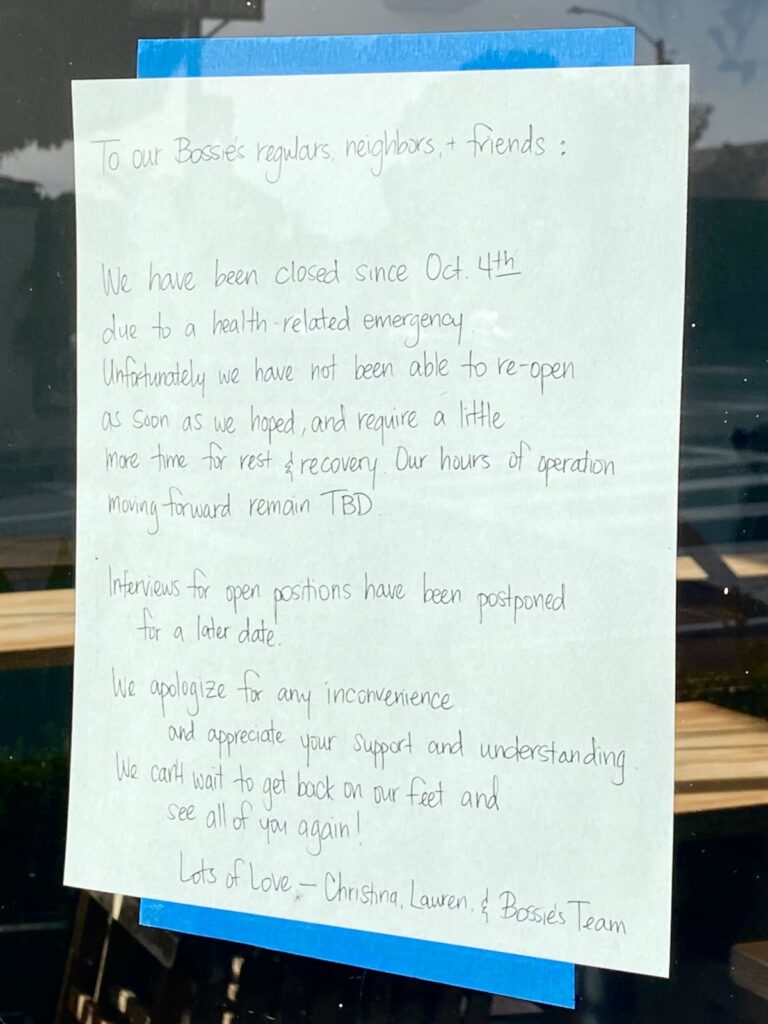 To our Bossie's regulars, neighbors, + friends :
We have been closed since Oct. 4th
due to a health-related emergency.
Unfortunately we have not been able to re-open
as soon as we hoped, and require a little
more time for rest & recovery. Our hours of operation
moving forward remain TBD.
Interviews for open positions have been postponed
for a later date.
We apologize for any inconvenience
and appreciate your support and understanding.
We can't wait to get back on our feet and
see all of you again!
Lots of Love - Christina, Lauren, & Bossie's Team